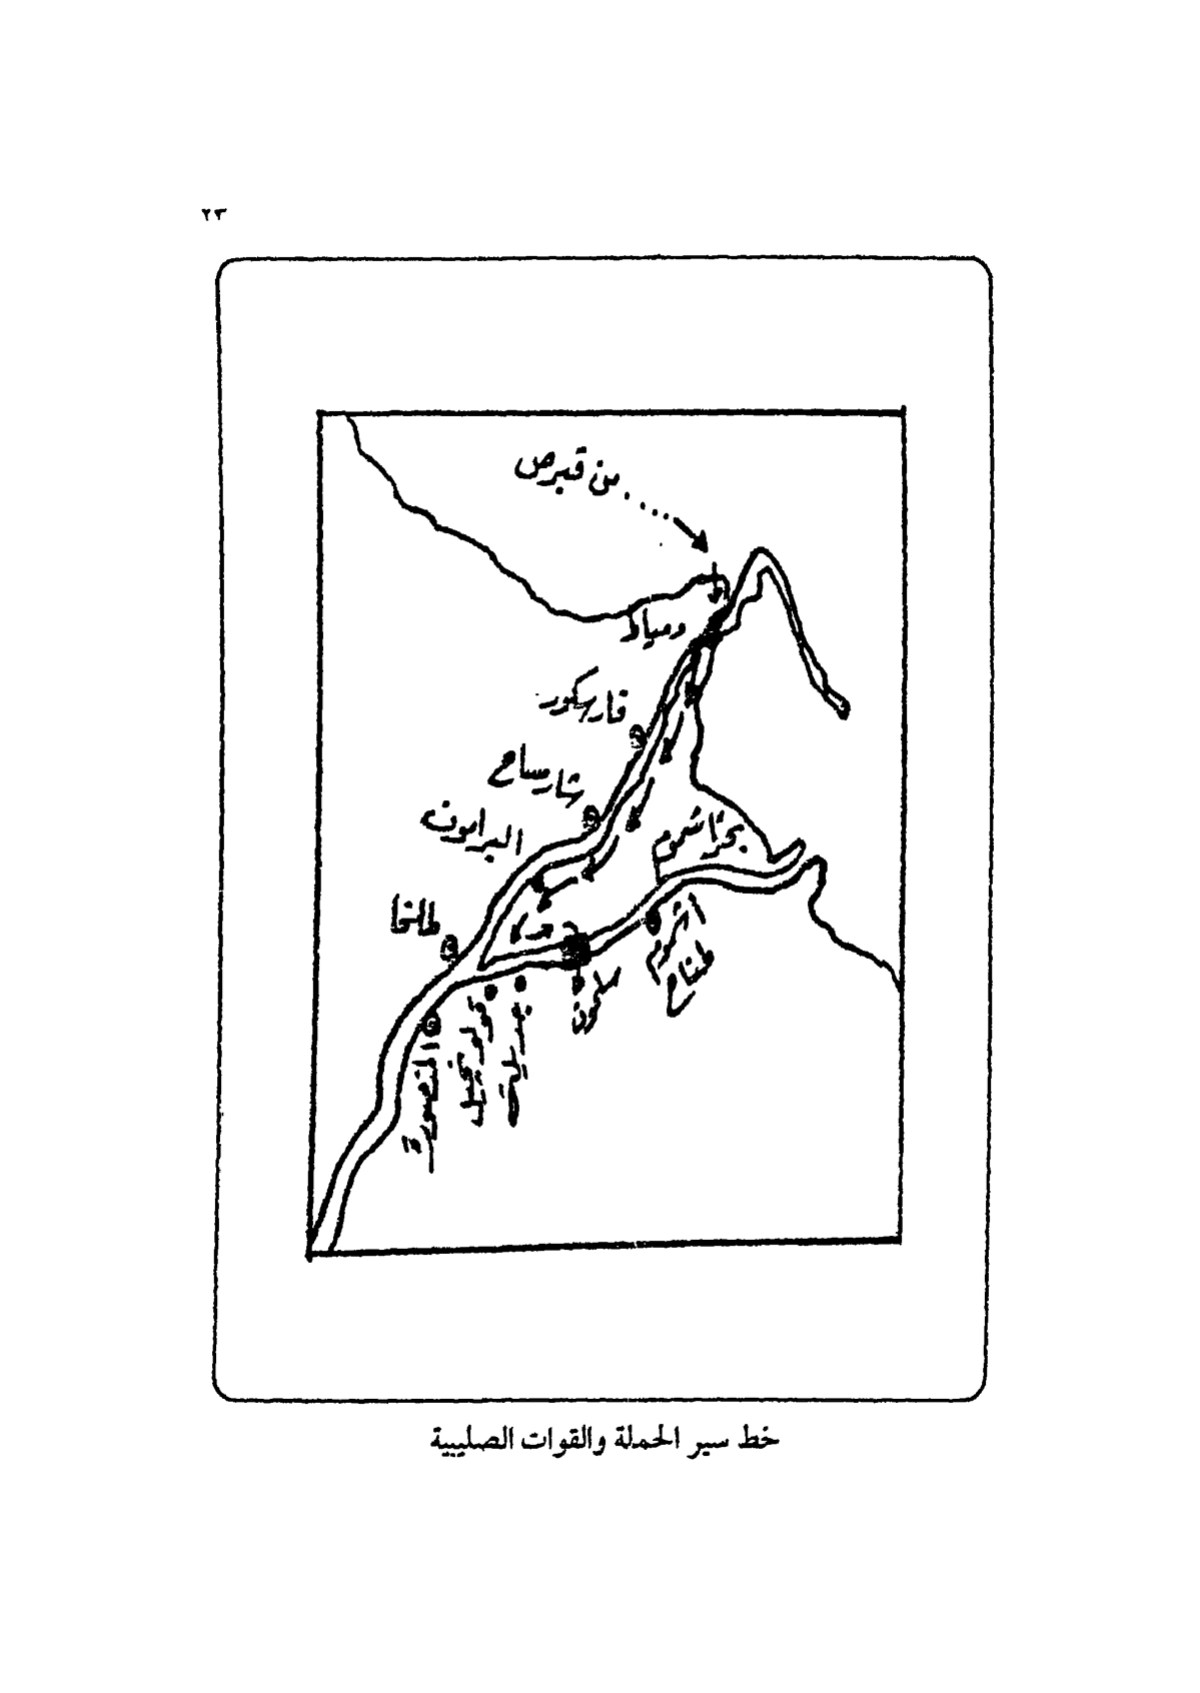 ٢٣
من قبرص
دمياط
فارسكور
شارمساح
البرامون
بحر اشموم
طلخا
اشموم
طناح
سلمون
جديلة
المنصورة
خط سير الحملة والقوات الصليبية